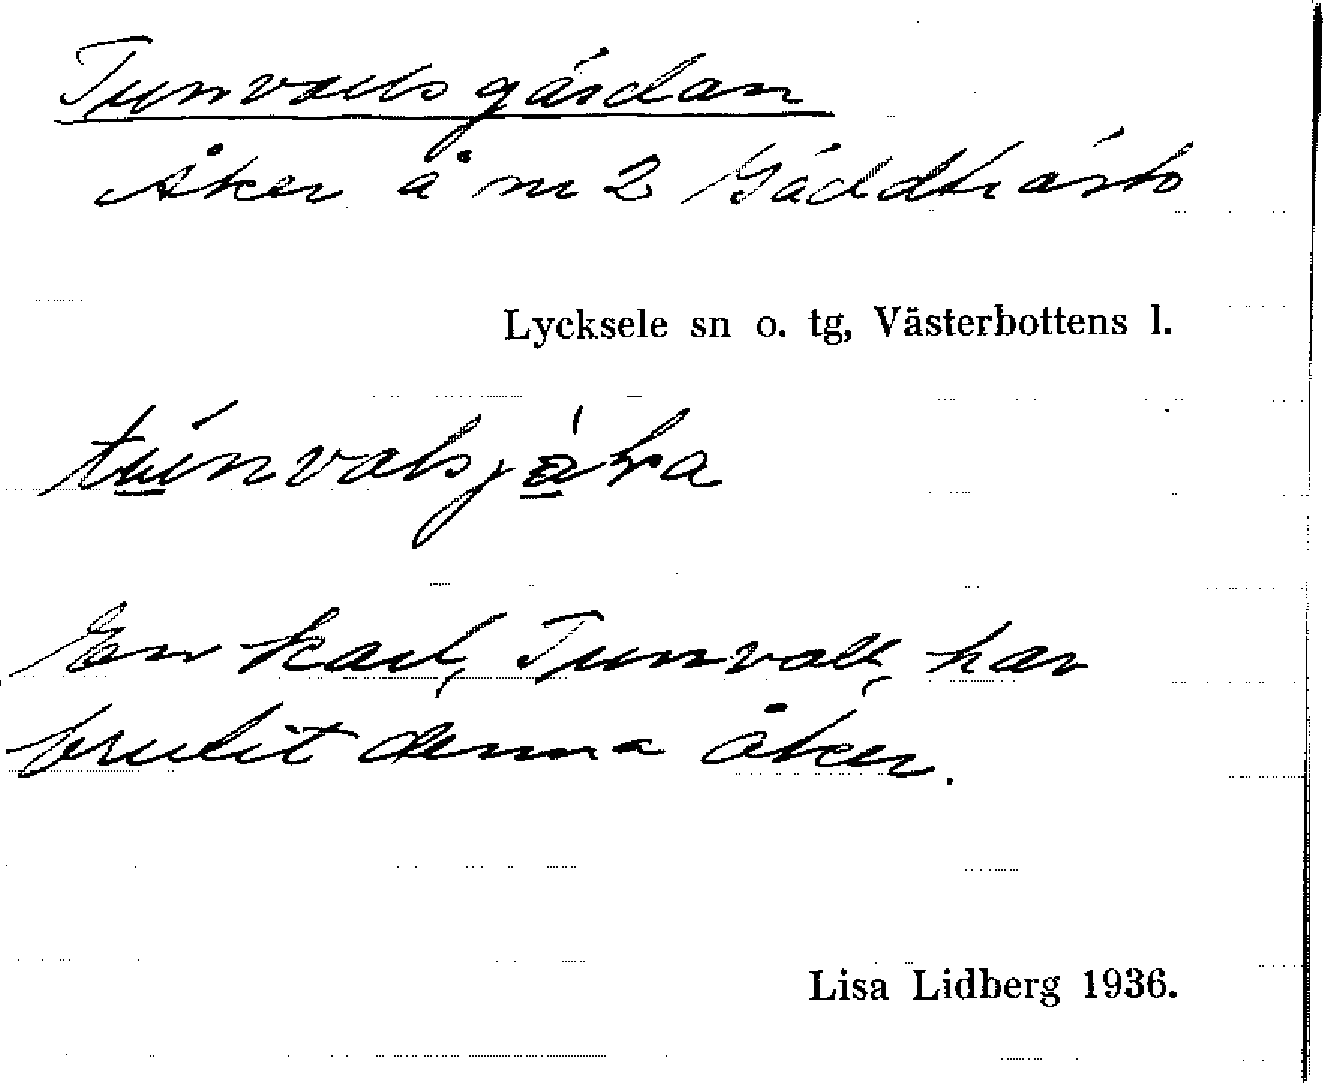 Tunvallsgärdan
Åker å nr 2 Gäddträsk
Lycksele sn o. tg, Västerbottens l.
En karl, Tunvall, har
brutit denna åker.
Lisa Lidberg 1936.